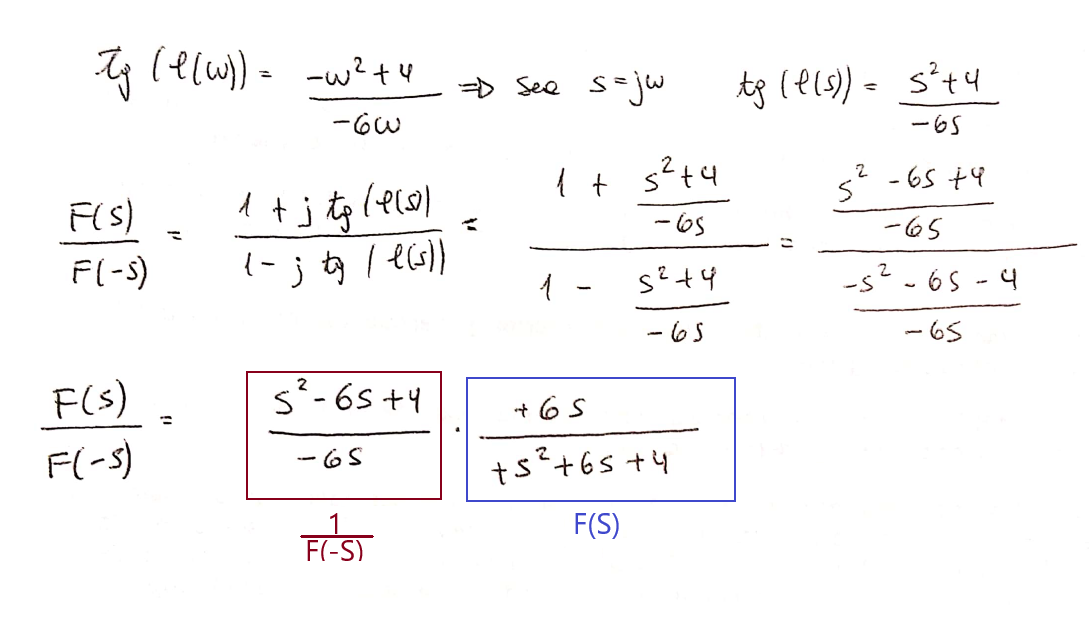 tg (φ(ω)) = (-ω² + 4)/(-6ω) ⇒ sea s = jω tg (φ(s)) = (s² + 4)/(-6s)
F(s)/F(-s) = (1 + j tg (φ(s))/(1 - j tg (φ(s)) = (1 + (s² + 4)/(-6s))/(1 - (s² + 4)/(-6s)) = ((s² - 6s + 4)/(-6s))/((-s² - 6s - 4)/(-6s))
F(s)/F(-s) = (s² - 6s + 4)/(-6s) · (+6s)/(+s² + 6s + 4)
1/F(-S) F(S)